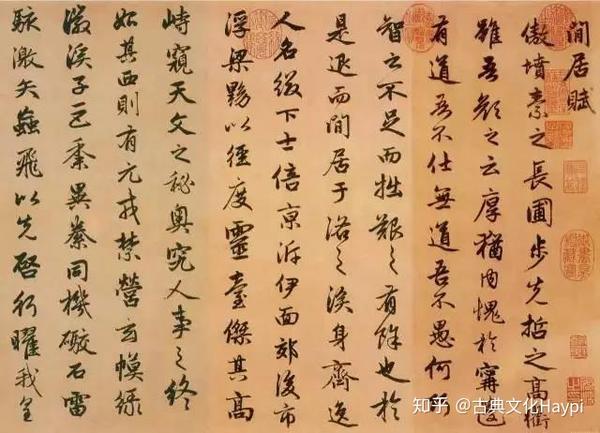 閒居賦
傲墳素之長圃步先哲之高衢
雖吾顏之云厚猶内愧於甯蘧
有道吾不仕無道吾不愚何巧
智之不足而拙艱之有餘也於
是退而閒居于洛之涘身齊逸
人名綴下士倍京泝伊面郊後市
浮梁黝以徑度靈臺傑其高
峙窺天文之秘奥究人事之終
始其西則有元戎禁營玄幙緑
徽溪子巨黍異絭同機礮石雷
駭激矢蝱飛以先啓行曜我皇
知乎 @古典文化Haypi